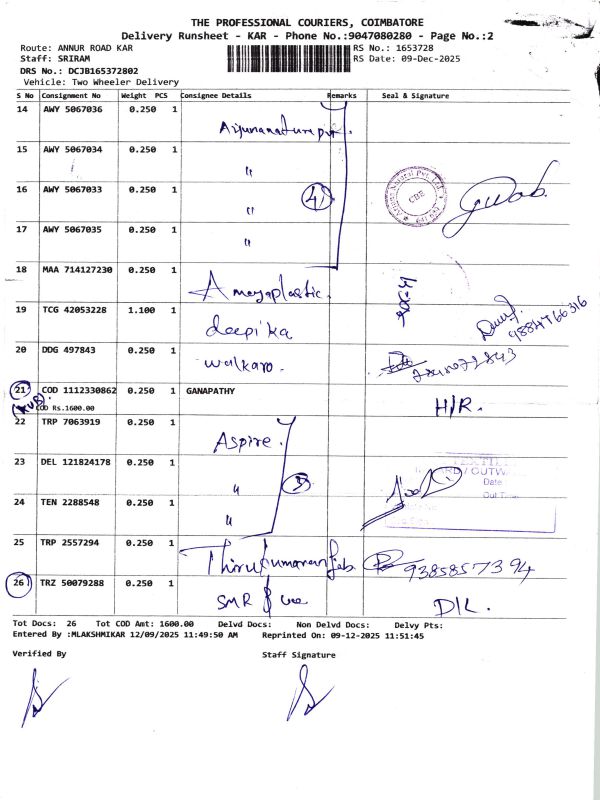 THE PROFESSIONAL COURIERS, COIMBATORE
Delivery Runsheet - KAR - Phone No.:9047080280 - Page No.:2
Route: ANNUR ROAD KAR RS No.: 1653728
Staff: SRIRAM RS Date: 09-Dec-2025
DRS No.: DCJB165372802
Vehicle: Two Wheeler Delivery
S No Consignment No Weight PCS Consignee Details Remarks Seal & Signature
14 AWY 5067036 0.250 1
15 AWY 5067034 0.250 1 "
16 AWY 5067033 0.250 1 " 4 CBE
17 AWY 5067035 0.250 1 "
18 MAA 714127230 0.250 1 Ameyaplastic.
19 TCG 42053228 1.100 1 deepika 9884766316
20 DDG 497843 0.250 1 walkaro.
21 COD 1112330862 0.250 1 GANAPATHY H/R.
COD Rs.1600.00
22 TRP 7063919 0.250 1 Aspire.
23 DEL 121824178 0.250 1 " 3 Date
24 TEN 2288548 0.250 1 "
25 TRP 2557294 0.250 1 Thirukumaran fab. 9385857394
26 TRZ 50079288 0.250 1 SMR D/L.
Tot Docs: 26 Tot COD Amt: 1600.00 Delvd Docs: Non Delvd Docs: Delvy Pts:
Entered By :MLAKSHMIKAR 12/09/2025 11:49:50 AM Reprinted On: 09-12-2025 11:51:45
Verified By Staff Signature